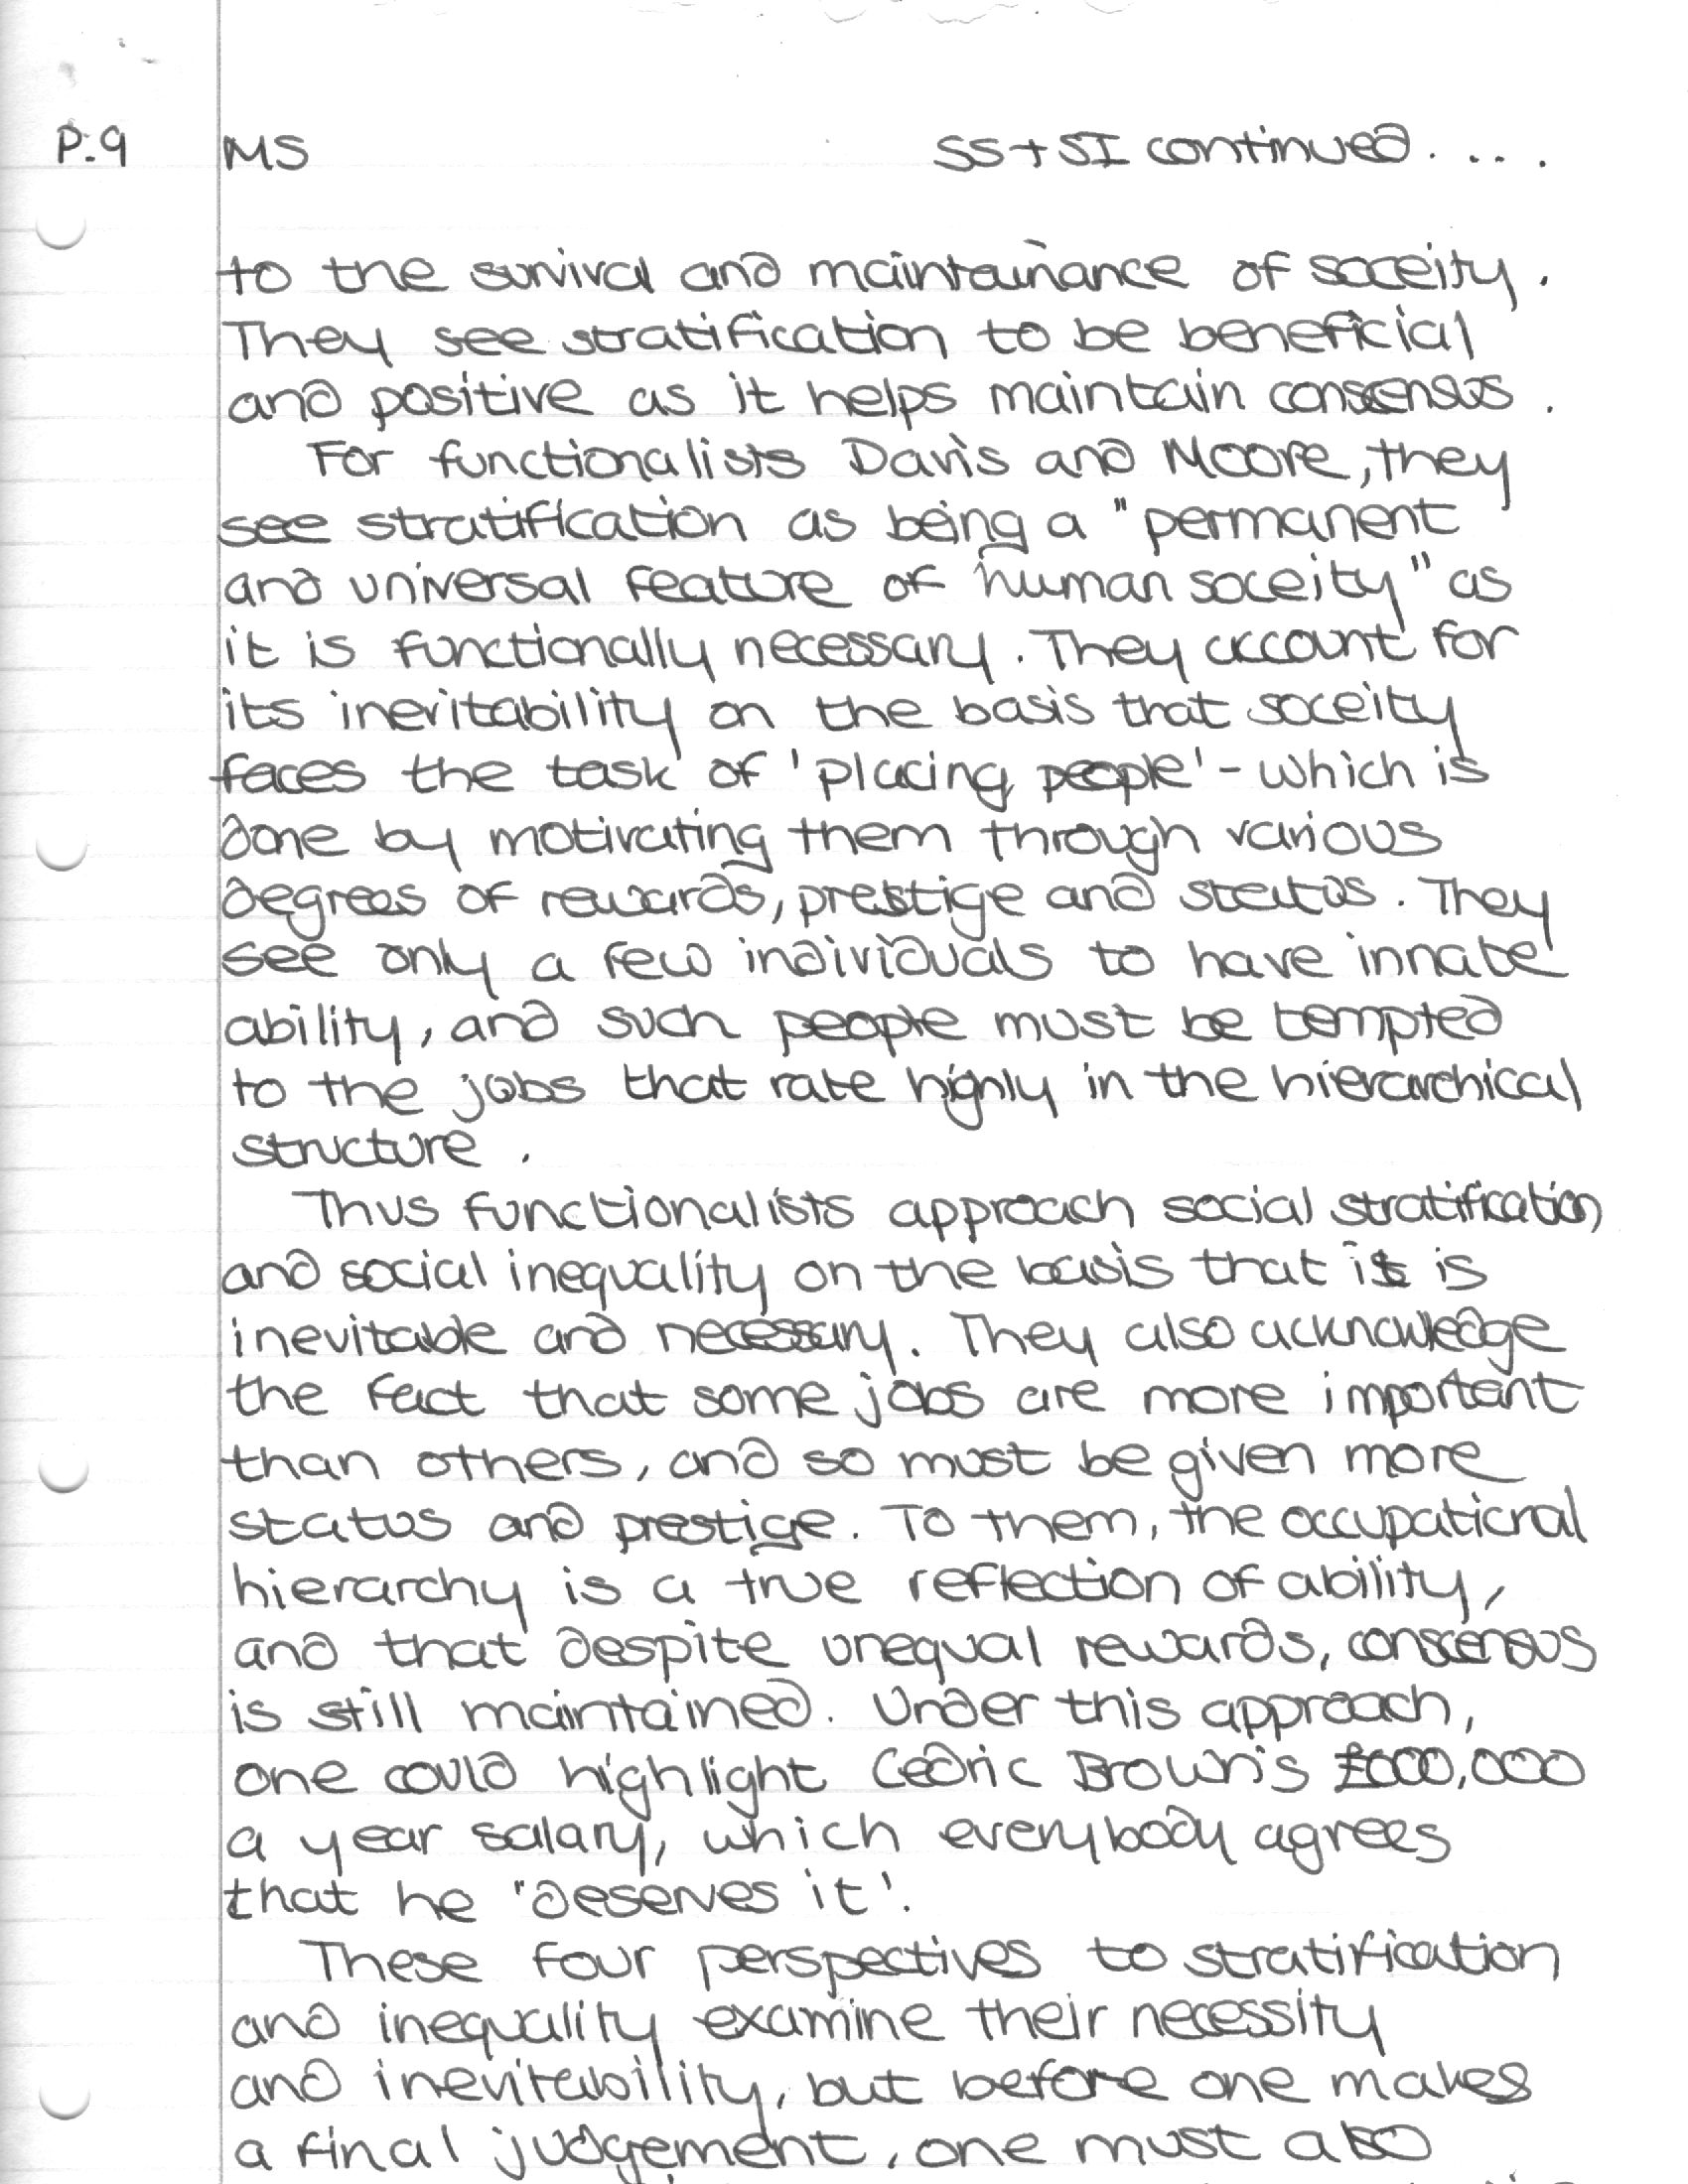 P.9 MS SS+SI continued....
to the survival and maintainance of soceity.
They see stratification to be beneficial
and positive as it helps maintain conscensus.
For functionalists Davis and Moore, they
see stratification as being a "permanent
and universal feature of human soceity" as
it is functionally necessary. They account for
its inevitability on the basis that soceity
faces the task of 'placing people' - which is
done by motivating them through various
degrees of rewards, prestige and status. They
see only a few individuals to have innate
ability, and such people must be tempted
to the jobs that rate highly in the hierarchical
structure.
Thus functionalists approach social stratification
and social inequality on the basis that it is
inevitable and necessary. They also acknowledge
the fact that some jobs are more important
than others, and so must be given more
status and prestige. To them, the occupational
hierarchy is a true reflection of ability,
and that despite unequal rewards, conscensus
is still maintained. Under this approach,
one could highlight Cedric Brown's
a year salary, which everybody agrees
that he 'deserves it'.
These four perspectives to stratification
and inequality examine their necessity
and inevitability, but before one makes
a final judgement, one must also